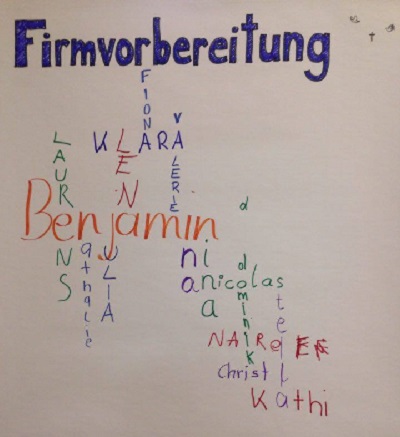 Firmvorbereitung
FIONA
KLARA
VALERIE
LENA
LAURENS
Benjamin
nathalie
JULIA
nina
nia
nicolas
dominik
stella
Christ
Kathi